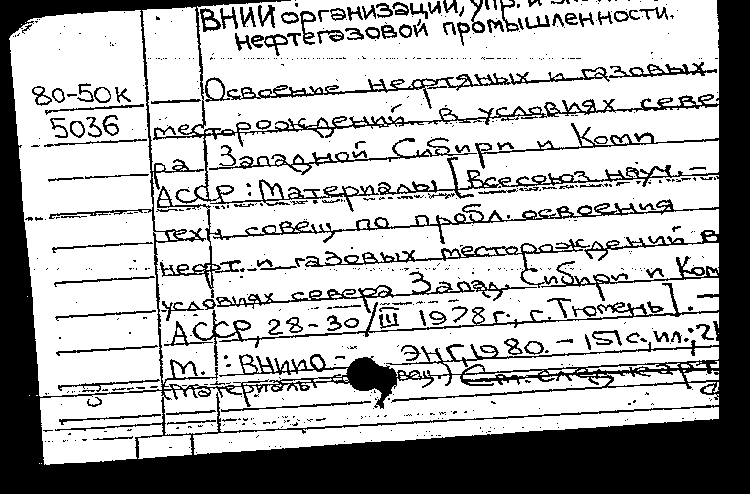 ВНИИ организации, упр. и
нефтегазовой промышленности.
80-50к Освоение нефтяных и газовых
5036 месторождений в условиях севе-
ра Западной Сибири и Коми
АССР: Материалы [Всесоюз. науч.-
техн. совещ. по пробл. освоения
нефт. и газовых месторождений в
условиях севера Запад. Сибири и Ком
АССР, 28-30/III 1978г., г. Тюмень]. –
М.: ВНИИО ЭНГ, 1980. – 151с., ил.; 21
(Материалы совещ.) См. след. карт.